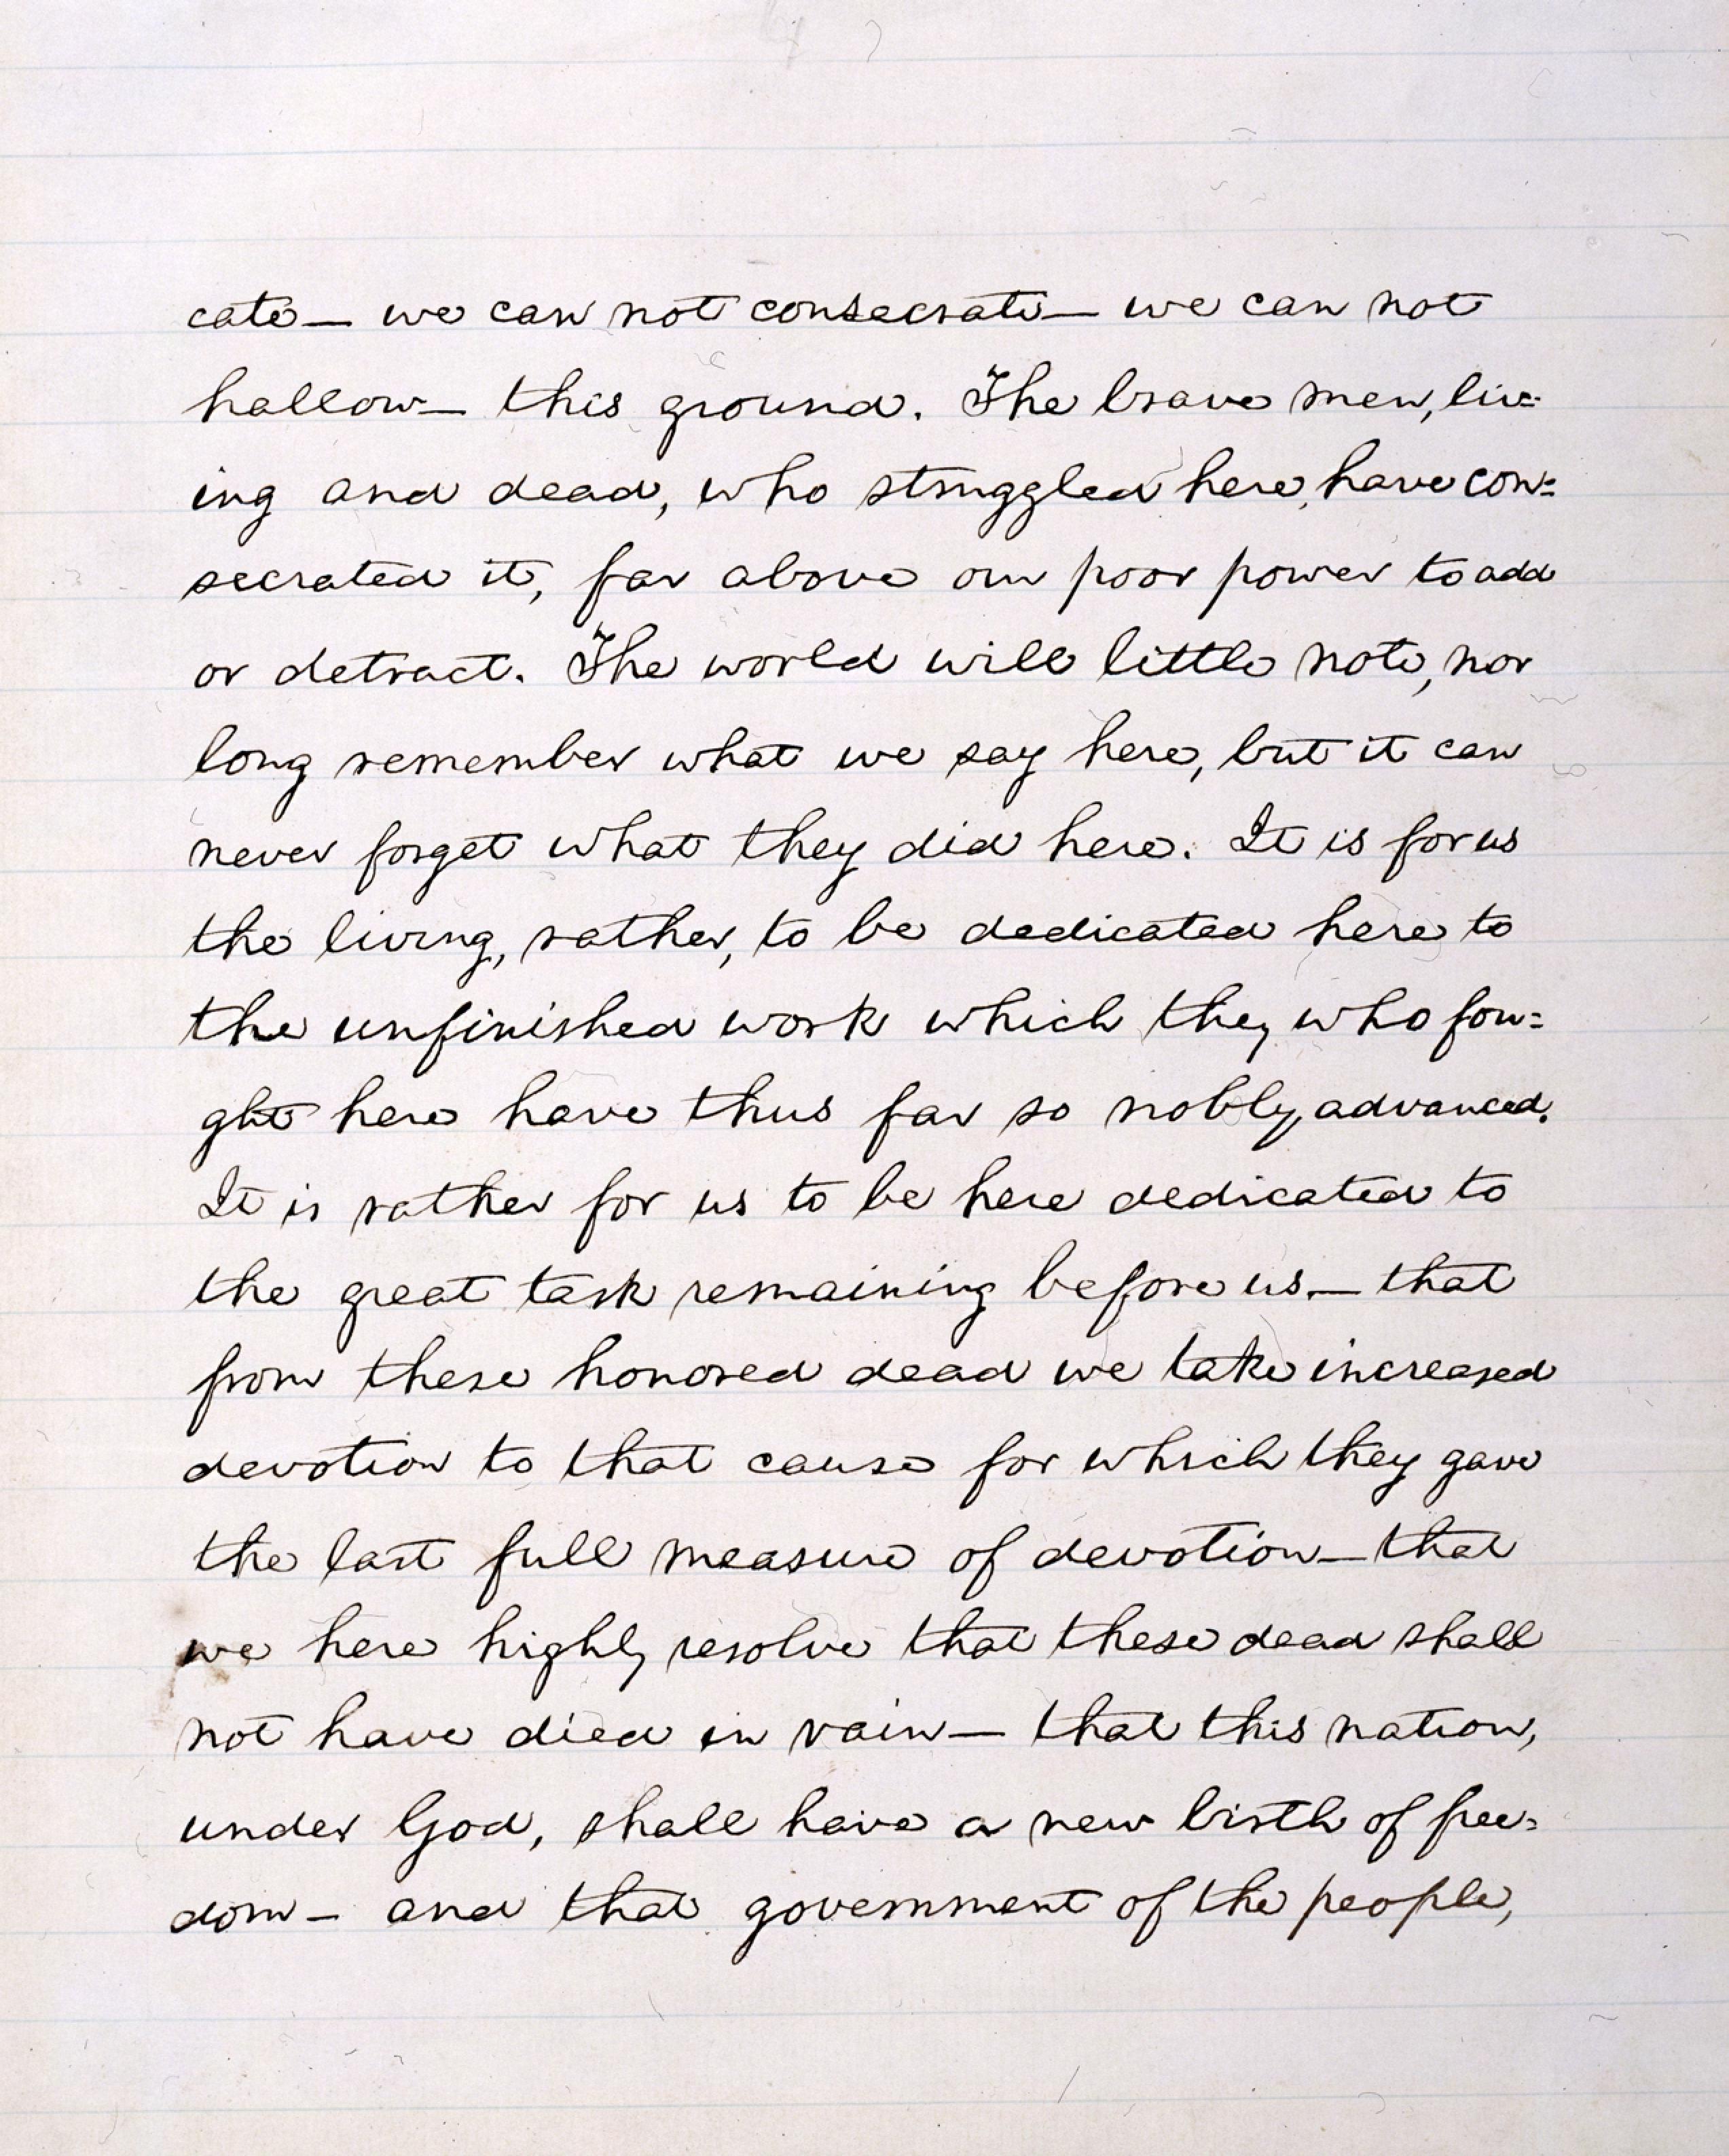 cate— we can not consecrate— we can not
hallow— this ground. The brave men, liv=
ing and dead, who struggled here, have con=
secrated it, far above our poor power to add
or detract. The world will little note, nor
long remember what we say here, but it can
never forget what they did here. It is for us
the living, rather, to be dedicated here to
the unfinished work which they who fou=
ght here have thus far so nobly advanced.
It is rather for us to be here dedicated to
the great task remaining before us— that
from these honored dead we take increased
devotion to that cause for which they gave
the last full measure of devotion— that
we here highly resolve that these dead shall
not have died in vain— that this nation,
under God, shall have a new birth of free=
dom— and that government of the people,